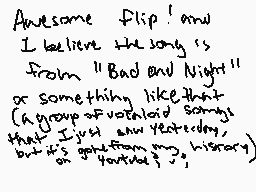 Awesome flip! and
I believe the song is
from "Bad end Night"
or something like that
(a group of vocaloid songs
that I just saw yesterday,
but it's gone from my hisrory)
on youtube ; v ;